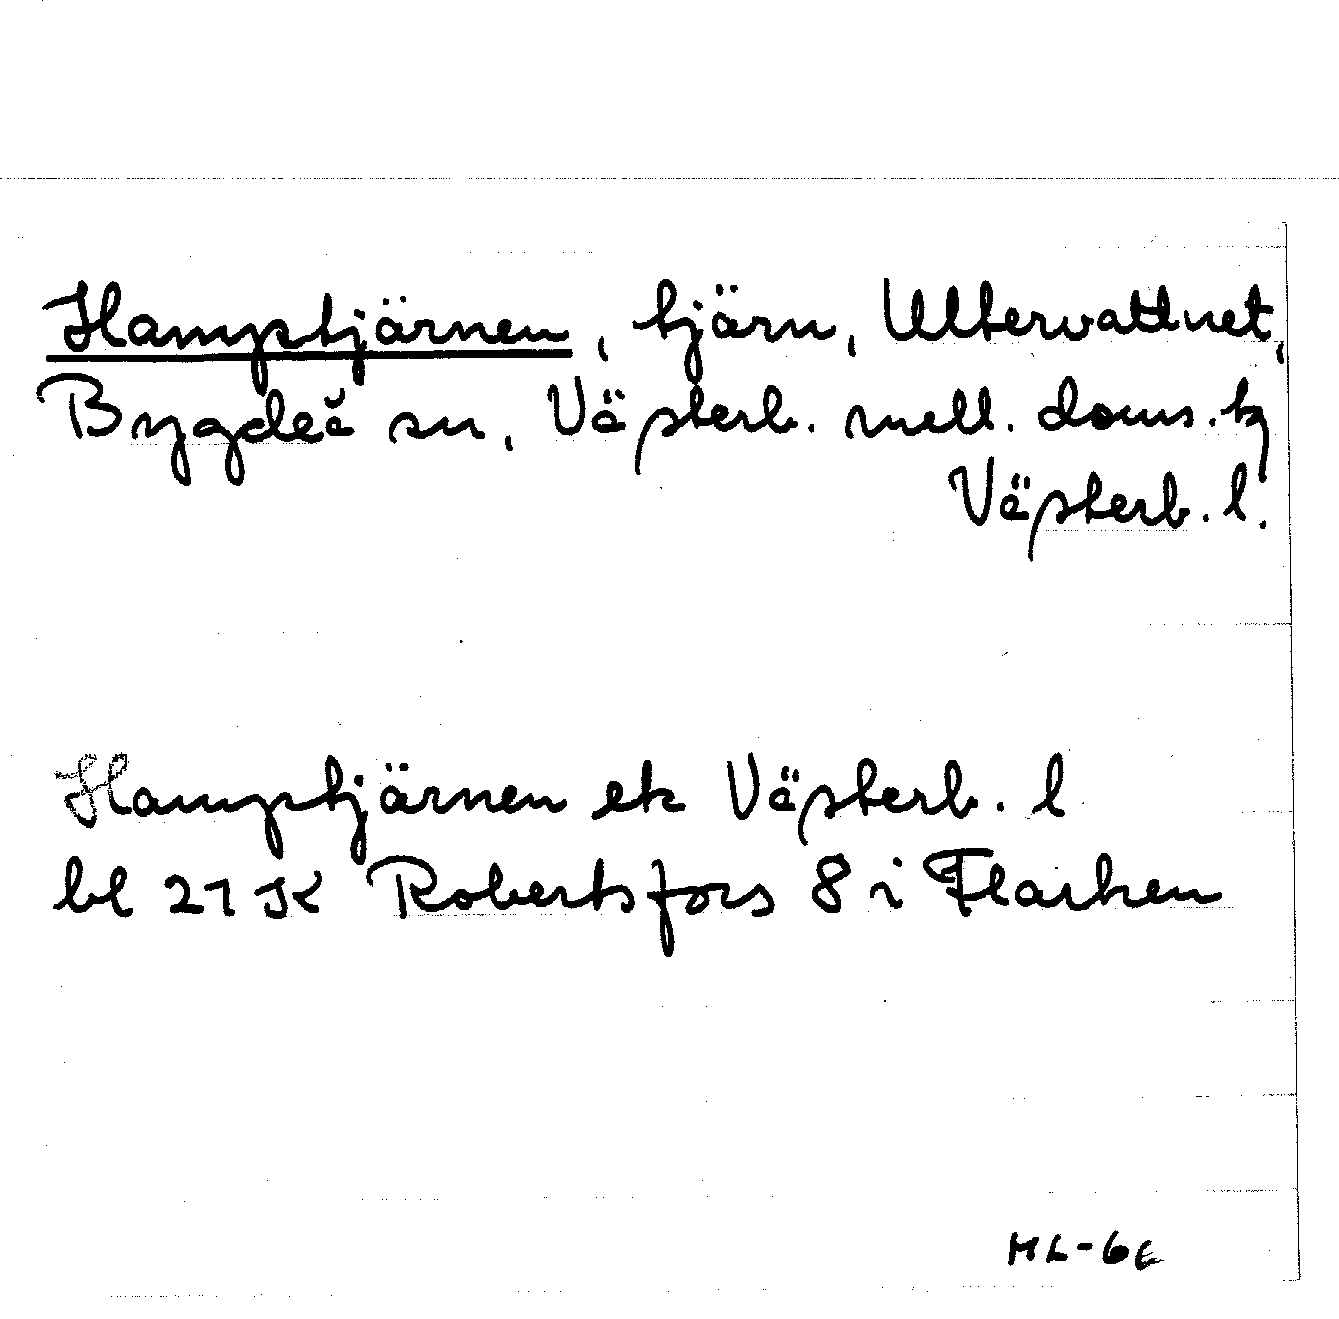 Hamptjärnen, tjärn, Ultervattnet,
Bygdeå sn, Västerb. mell. doms. tg
Västerb. l.
Hamptjärnen ek Västerb. l
bl 21 K Robertsfors 8 i Flarken